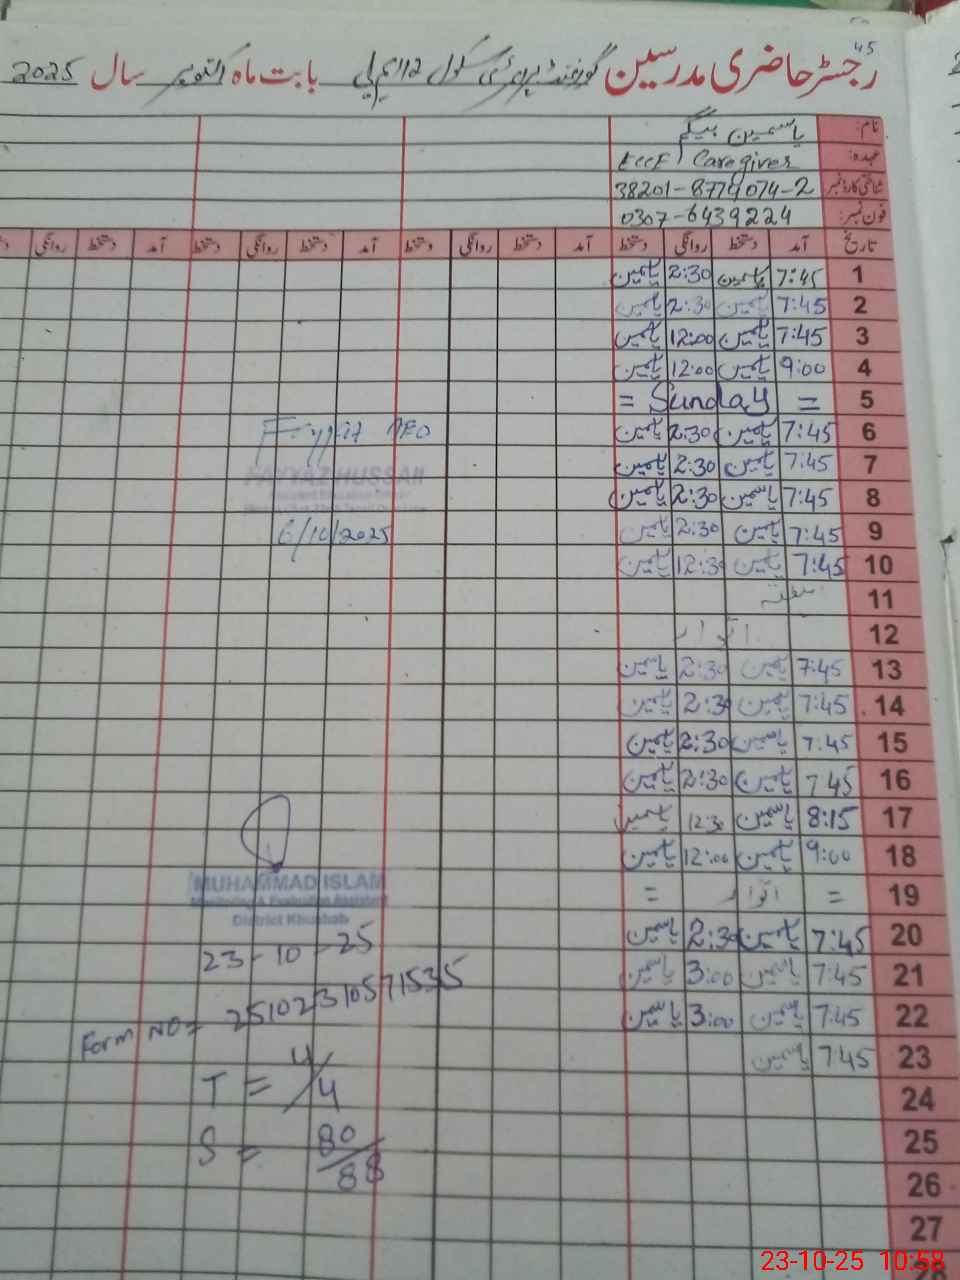 45
رجسٹر حاضری مدرسین گورنمنٹ پرائمری سکول 112 ایم بی بابت ماہ اکتوبر سال 2025
نام: یاسمین بیگم
عہدہ: ECCE Caregiver
شناختی کارڈ نمبر 38201-8774074-2
فون نمبر: 0307-6439224
تاریخ آمد دستخط روانگی دستخط آمد دستخط روانگی دستخط آمد دستخط روانگی دستخط
1 7:45 یاسمین 2:30 یاسمین
2 7:45 یاسمین 2:30 یاسمین
3 7:45 یاسمین 12:00 یاسمین
4 9:00 یاسمین 12:00 یاسمین
5 = Sunday =
6 7:45 یاسمین 2:30 یاسمین
7 7:45 یاسمین 2:30 یاسمین
8 7:45 یاسمین 2:30 یاسمین
9 7:45 یاسمین 2:30 یاسمین
10 7:45 یاسمین 12:30 یاسمین
11 ہفتہ
12 اتوار
13 7:45 یاسمین 2:30 یاسمین
14 7:45 یاسمین 2:30 یاسمین
15 7:45 یاسمین 2:30 یاسمین
16 7:45 یاسمین 2:30 یاسمین
17 8:15 یاسمین 12:30 یاسمین
18 9:00 یاسمین 12:00 یاسمین
19 = اتوار =
20 7:45 یاسمین 2:30 یاسمین
21 7:45 یاسمین 3:00 یاسمین
22 7:45 یاسمین 3:00 یاسمین
23 7:45 یاسمین
24
25
26
27
28
Fayyaz AEO
FAYYAZ HUSSAIN
Assistant Education Officer
6/10/2025
MUHAMMAD ISLAM
Monitoring & Evaluation Assistant
District Khushab
23-10-25
Form NO= 25102310571535
T = 4/4
S = 80/88
23-10-25 10:58